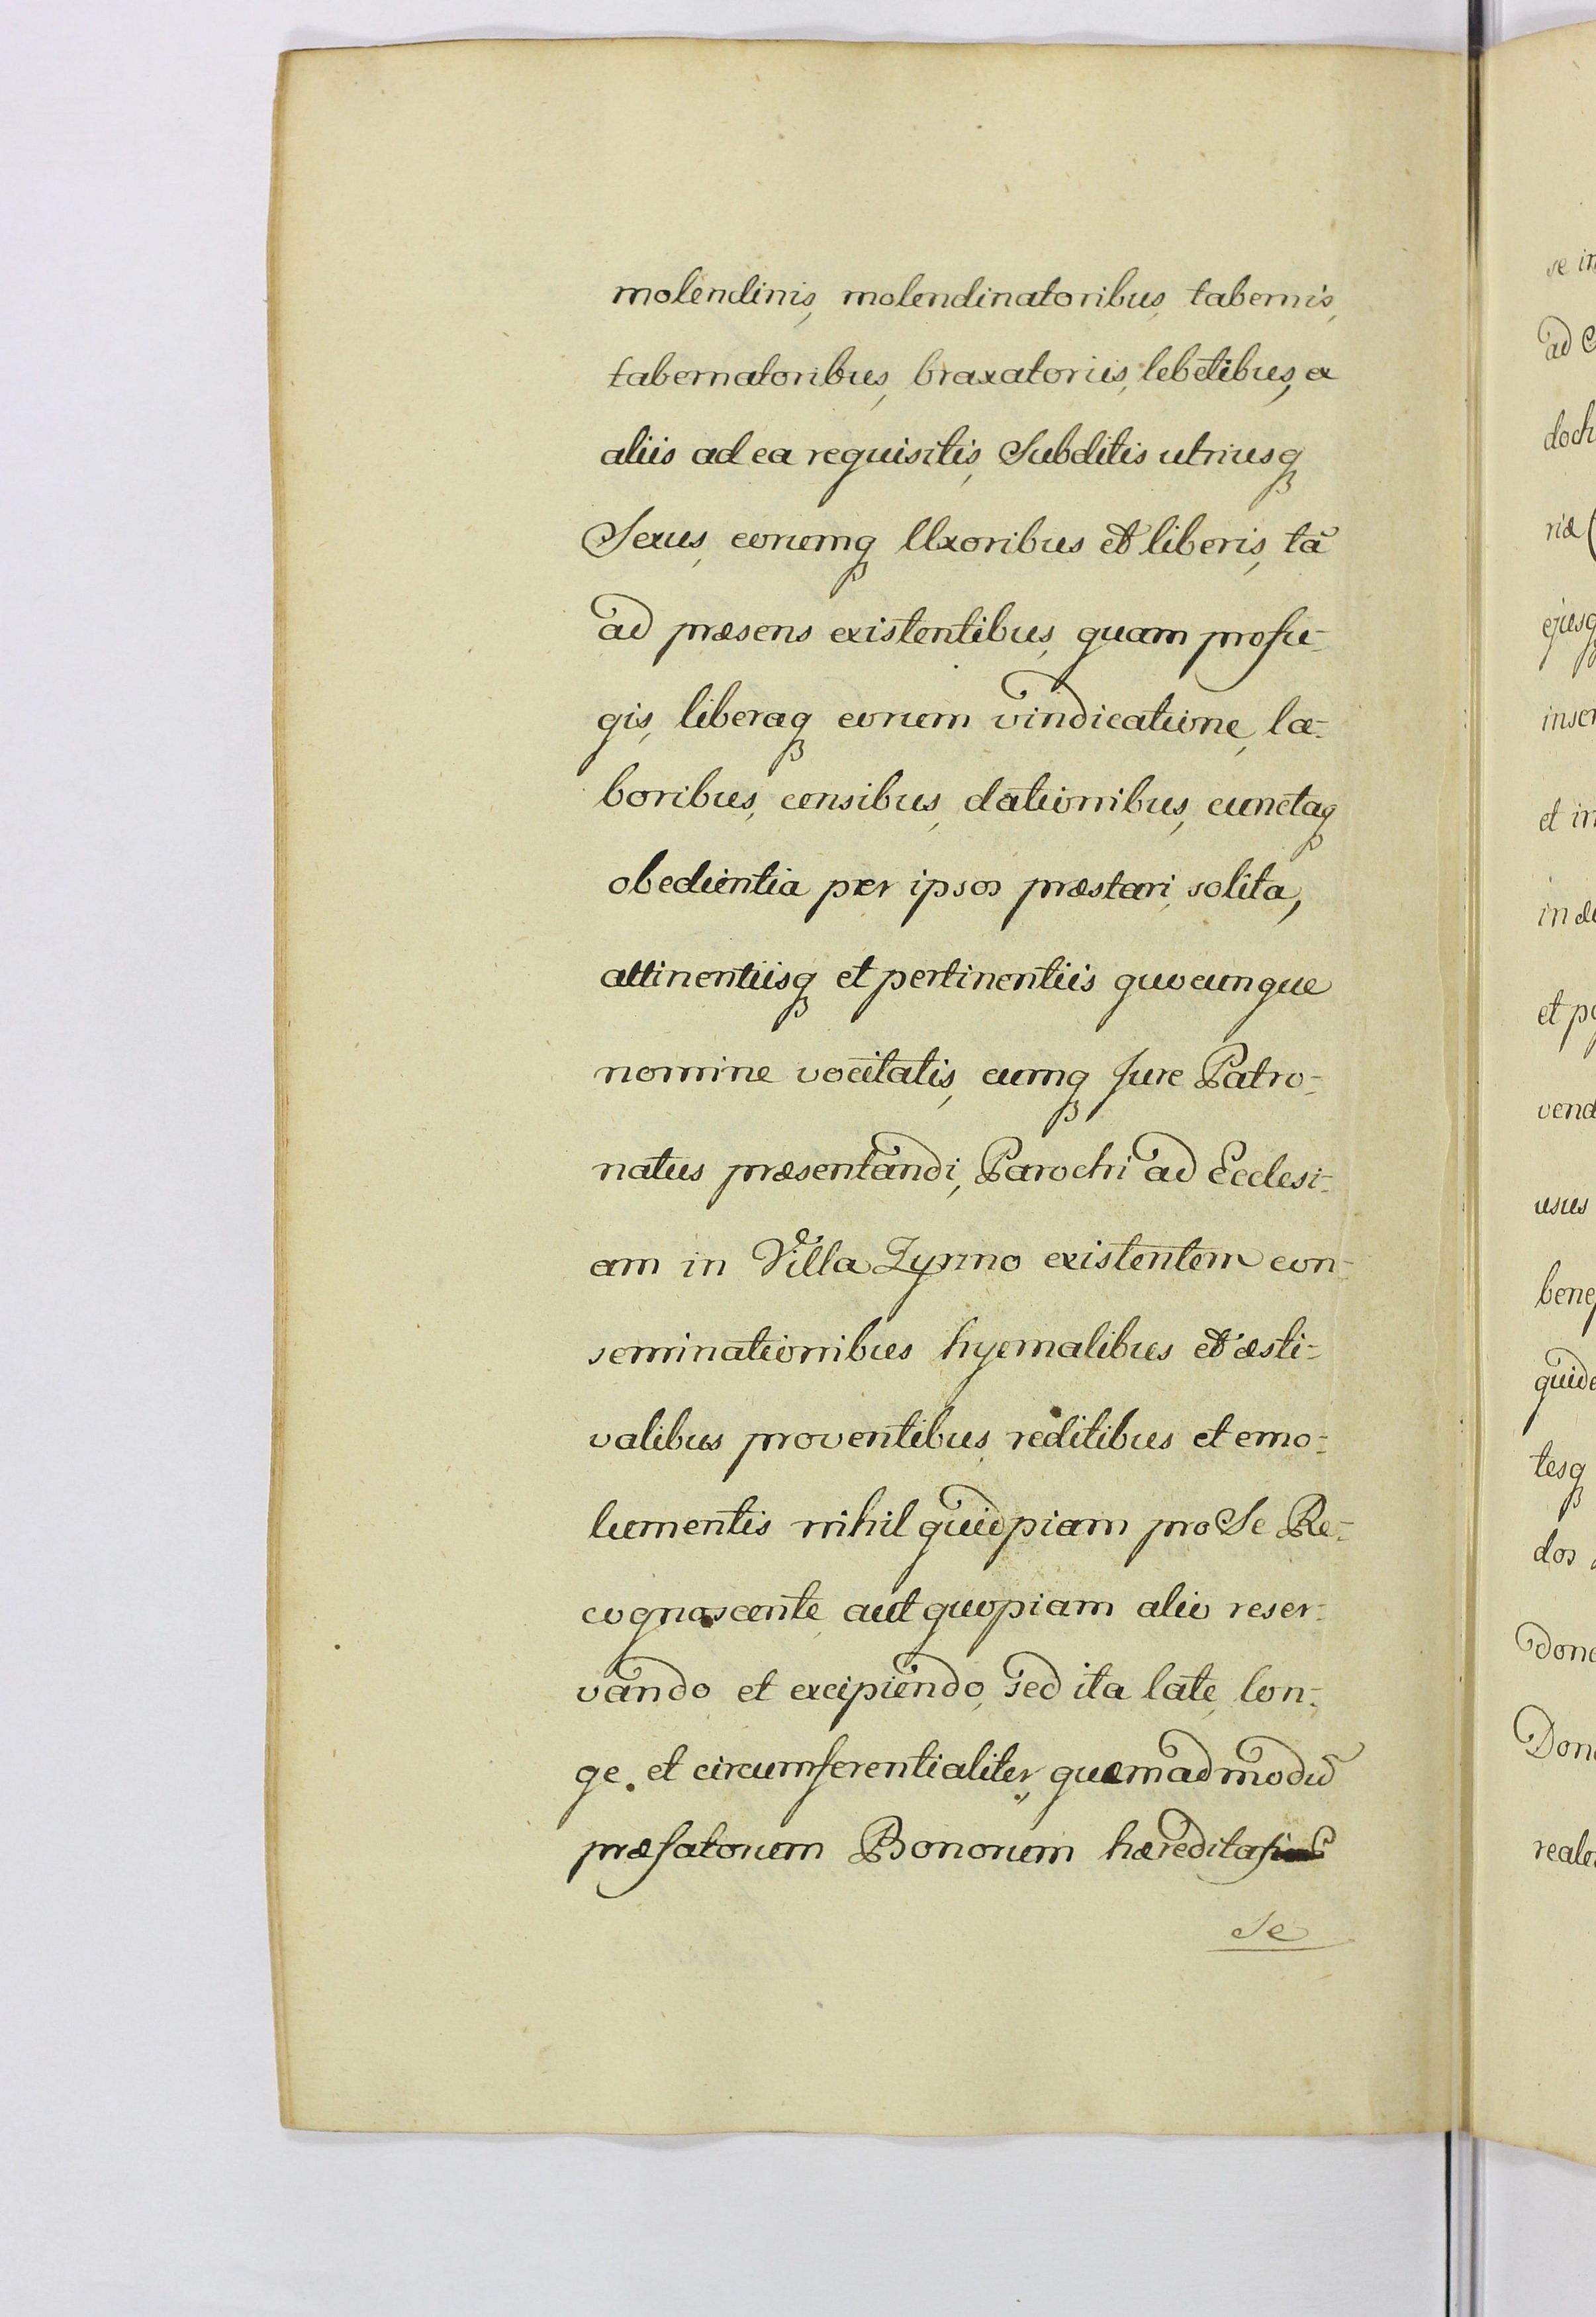 molendinis, molendinatoribus, tabernis,
tabernatoribus, braxatoriis, lebetibus, ex
aliis ad ea requisitis, Subditis utriusq
Sexus, eorumq Uxoribus et liberis, tã
ad præsens existentibus, quam profu-
gis, liberaq eorum vindicatione, la-
boribus, censibus, dationibus, cunctaq
obedientia per ipsos præstari, solita,
attinentiisq et pertinentiis quocunque
nomine vocitatis, cumq Jure Patro-
natus præsentandi, Parochi ad Ecclesi-
am in Villa Zyrmo existentem con-
seminationibus hyemalibus et æsti-
valibus proventibus, reditibus et emo-
lumentis nihil quidpiam pro Se Re-
cognoscente aut quopiam alio reser-
vando et excipiendo, sed ita late, lon-
ge. et circumferentialiter, quemadmodũ
præfatorum Bonorum hæreditas
se
se in
ad
doch
riæ
ejusq
inser
et in
in
et
vend
usus
bene
quide
tesq
dos
done
Don
reale